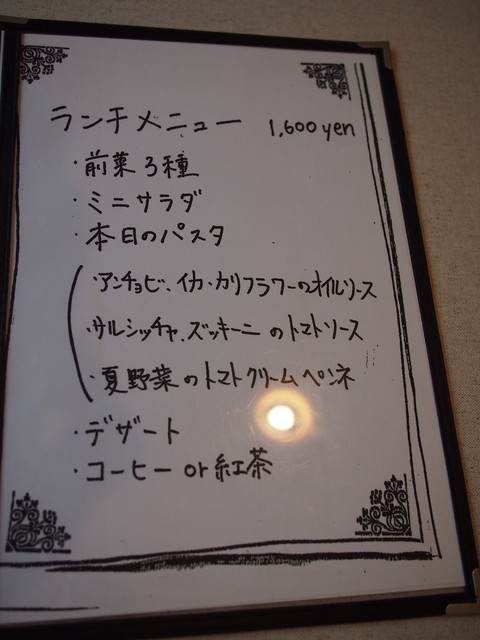 ランチメニュー 1,600yen
・前菜3種
・ミニサラダ
・本日のパスタ
・アンチョビ、イカ・カリフラワーのオイルソース
・サルシッチャ、ズッキーニのトマトソース
・夏野菜のトマトクリームペンネ
・デザート
・コーヒー or 紅茶